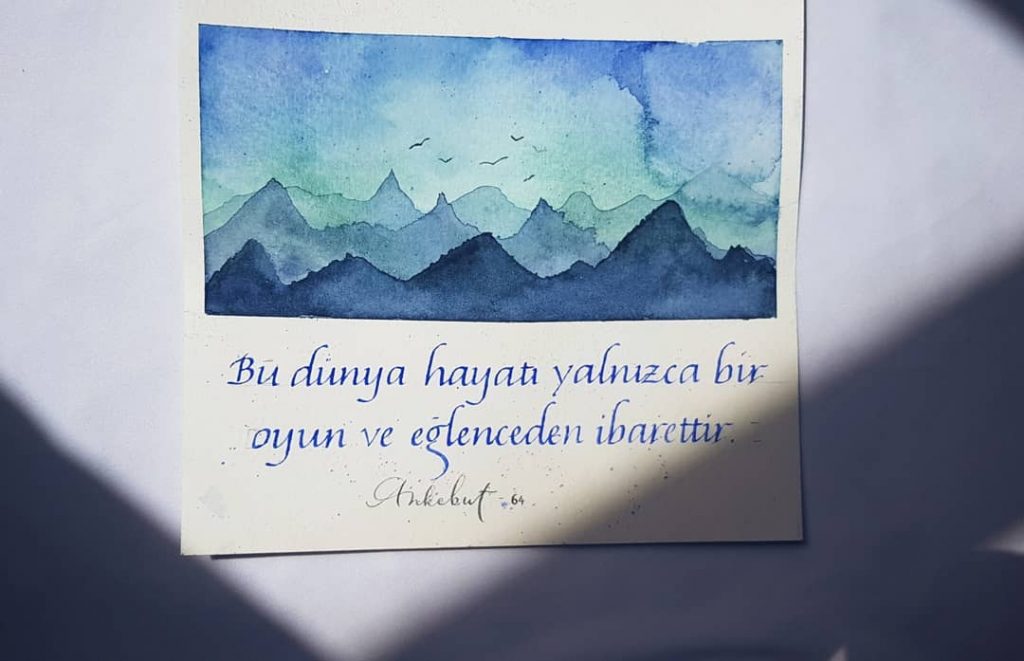 Bu dünya hayatı yalnızca bir
oyun ve eğlenceden ibarettir.
Ankebut - 64